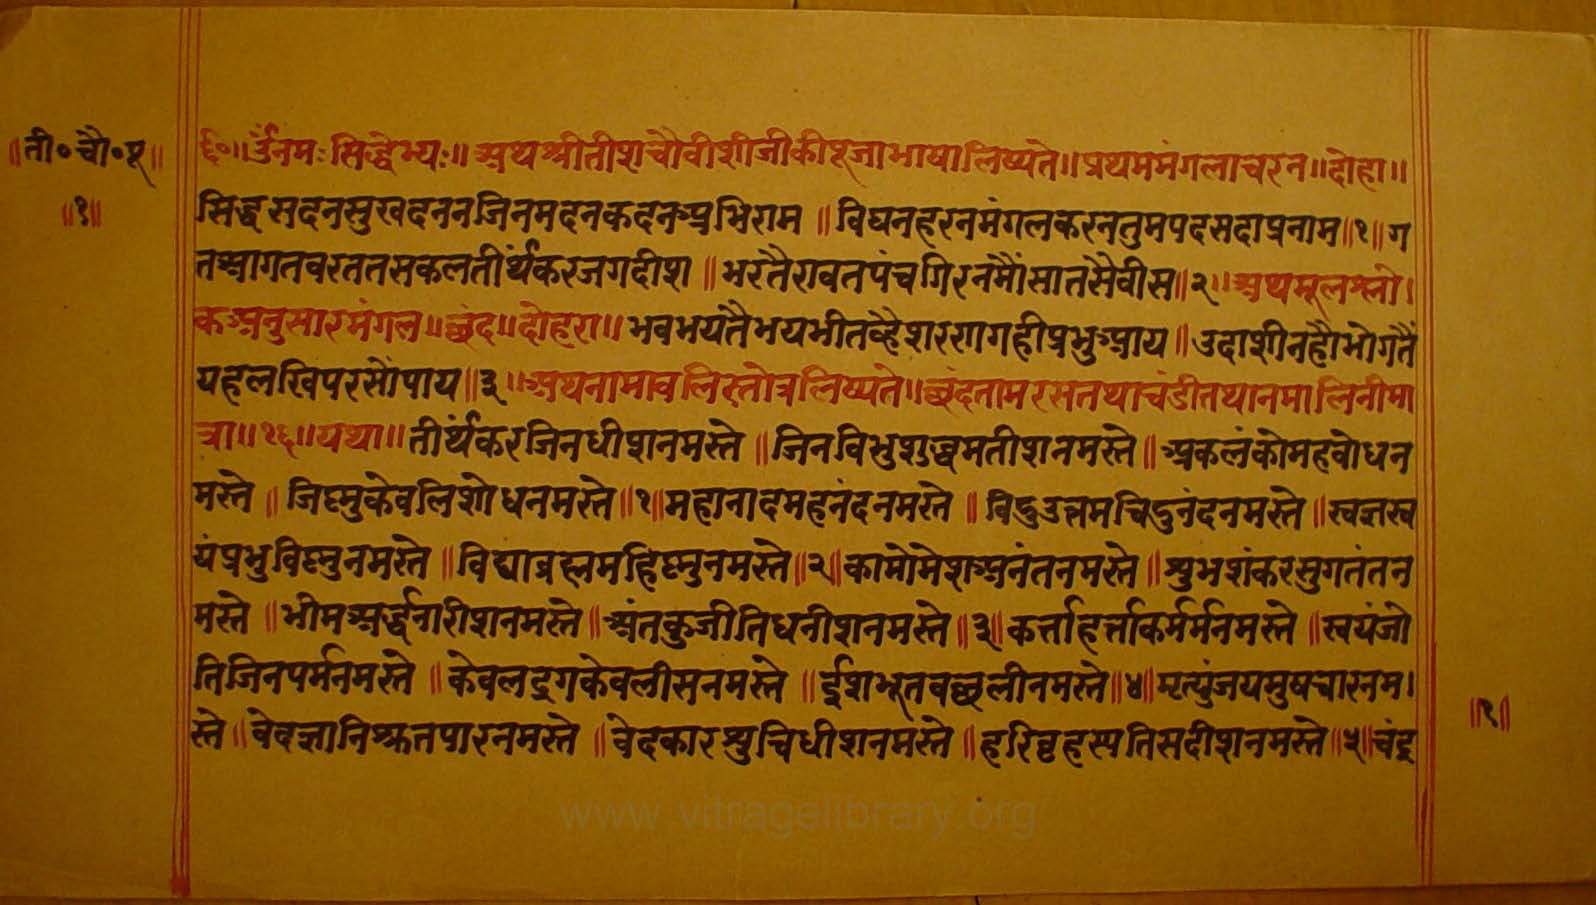 ॥ती०चौ०पू॥
॥१॥
६०॥ॐनमः सिद्धेभ्यः॥ अथश्रीतीशचौवीशीजीकीपूजाभाषालिष्यते॥प्रथममंगलाचरन॥दोहा॥
सिद्धसदनसुखदननजिनमदनकदनअभिराम ॥विघनहरनमंगलकरनतुमपदसदाप्रनाम॥१॥ग
तआगतवरततसकलतीर्थंकरजगदीश ॥भरतैरावतपंचगिरनमौंसातसैवीस॥२॥अथमूलश्लो।
कअनुसारमंगल॥छंद॥दोहरा॥भवभयतैभयभीतव्हैशरणगहीप्रभुआय ॥उदाशीनहौभोगतैं
यहलखिपरसौंपाय॥३॥अथनामावलिस्तोत्रलिष्यते॥छंदतामरसतथाचंडीतथानमालिनीमा
त्रा॥१६॥यथा॥तीर्थंकरजिनधीशनमस्ते ॥जिनविभुशुद्धमतीशनमस्ते॥अकलंकोमहवोधन
मस्ते ॥जिष्णुकेवलिशोधनमस्ते॥१॥महानादमहनंदनमस्ते ॥विदुउत्तमचिदुनंदनमस्ते॥स्वज्ञस्व
यंप्रभुविष्णुनमस्ते ॥विद्याब्रह्ममहिष्णुनमस्ते॥२॥कामोमेशअनंतनमस्ते॥शुभशंकरसुगतंतन
मस्ते ॥भीमअर्द्धनारीशनमस्ते॥अंतकुजीतिधनीशनमस्ते॥३॥कर्त्ताहर्त्ताकर्मर्मनमस्ते ॥स्वयंजो
तिजिनपर्मनमस्ते ॥केवलद्रगकेवलीसनमस्ते ॥ईशभूतवछलीनमस्ते॥४॥मृत्युंजयसुषचारनम।
स्ते॥वेदज्ञानिश्रुतपारनमस्ते ॥वेदकारशुचिधीशनमस्ते ॥हरिवृहस्पतिसदीशनमस्ते॥५॥चंद्र
॥१॥
www.vitragelibrary.org